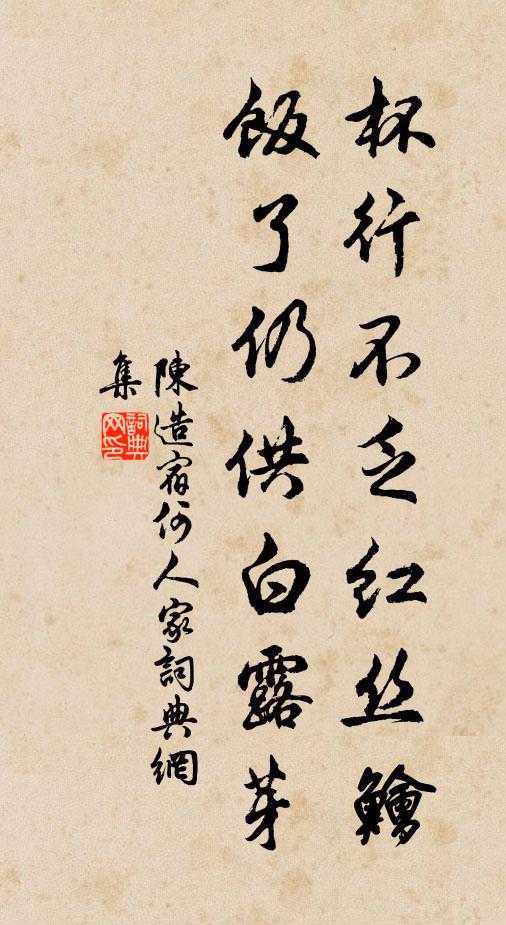 杯行不乏红丝鱠
飯了仍供白露芽
陳造宿何人家詞典網
集
詞典
网印